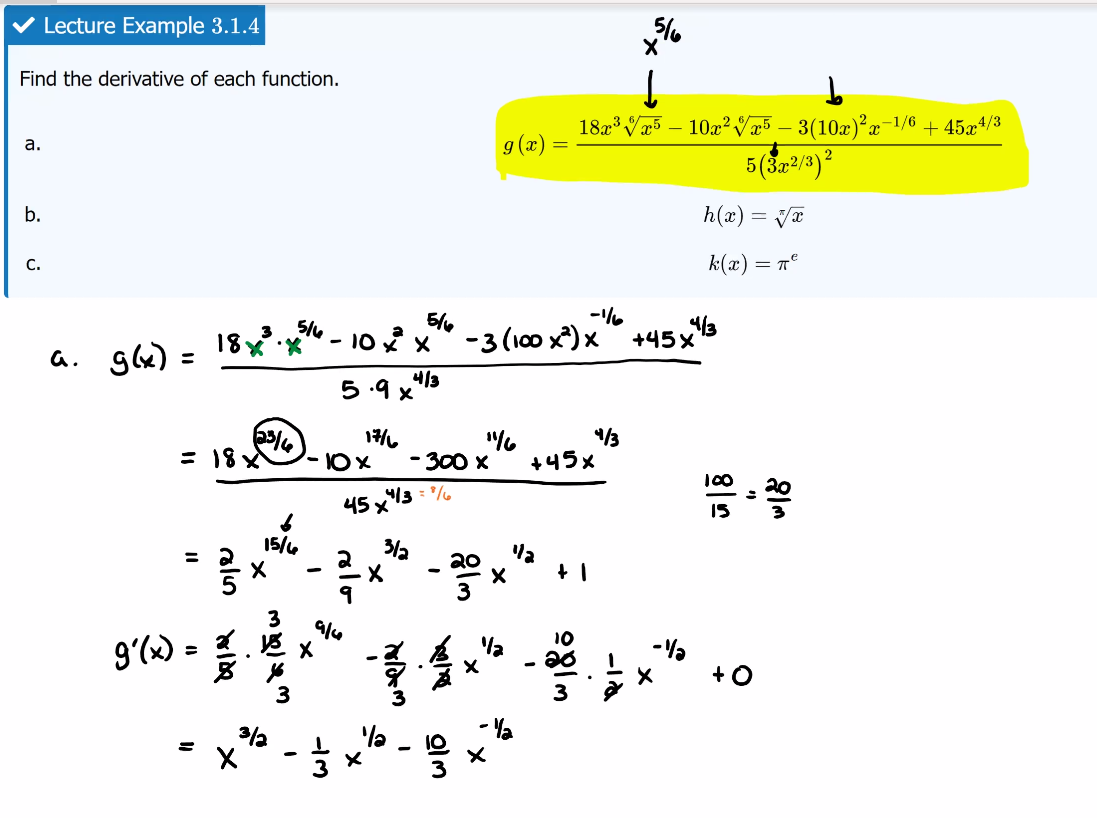 ✓ Lecture Example 3.1.4
x^{5/6}
Find the derivative of each function.
a. g(x) = \frac{18x^3 \sqrt[6]{x^5} - 10x^2 \sqrt[6]{x^5} - 3(10x)^2 x^{-1/6} + 45x^{4/3}}{5(3x^{2/3})^2}
b. h(x) = \sqrt[π]{x}
c. k(x) = π^e
a. g(x) = \frac{18x^3 · x^{5/6} - 10x^2 x^{5/6} - 3(100x^2)x^{-1/6} + 45x^{4/3}}{5·9x^{4/3}}
= \frac{18x^{23/6} - 10x^{17/6} - 300x^{11/6} + 45x^{4/3}}{45x^{4/3} = 8/6}
\frac{100}{15} = \frac{20}{3}
= \frac{2}{5}x^{15/6} - \frac{2}{9}x^{3/2} - \frac{20}{3}x^{1/2} + 1
3
g'(x) = \frac{2}{5} · \frac{15}{6} x^{9/6} - \frac{2}{9} · \frac{3}{2} x^{1/2} - \frac{20}{3} · \frac{1}{2} x^{-1/2} + 0
10
3
3
= x^{3/2} - \frac{1}{3}x^{1/2} - \frac{10}{3}x^{-1/2}